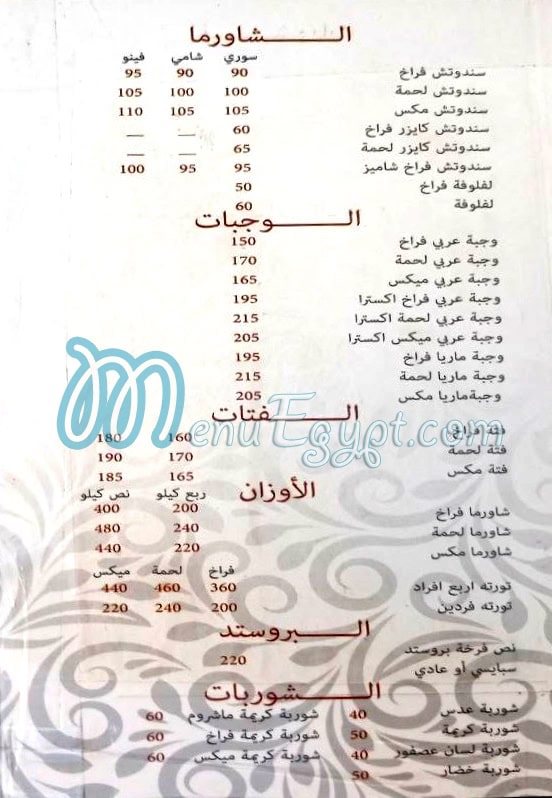 الـشاورما
سوري شامي فينو
سندوتش فراخ 90 90 95
سندوتش لحمة 100 100 105
سندوتش مكس 105 105 110
سندوتش كايزر فراخ 60 — —
سندوتش كايزر لحمة 65 — —
سندوتش فراخ شاميز 95 95 100
لفلوفة فراخ 50
لفلوفة 60
الـوجبات
وجبة عربي فراخ 150
وجبة عربي لحمة 170
وجبة عربي ميكس 165
وجبة عربي فراخ اكسترا 195
وجبة عربي لحمة اكسترا 215
وجبة عربي ميكس اكسترا 205
وجبة ماريا فراخ 195
وجبة ماريا لحمة 215
وجبةماريا مكس 205
MenuEgypt.com
الـفتات
فتة فراخ 160 180
فتة لحمة 170 190
فتة مكس 165 185
الأوزان
ربع كيلو نص كيلو
شاورما فراخ 200 400
شاورما لحمة 240 480
شاورما مكس 220 440
فراخ لحمة ميكس
تورته اربع افراد 360 460 440
تورته فردين 200 240 220
الـبروستد
نص فرخة بروستد
سبايسي أو عادي 220
الـشوربات
شوربة عدس 40 شوربة كريمة ماشروم 60
شوربة كريمة 50 شوربة كريمة فراخ 60
شوربة لسان عصفور 40 شوربة كريمة ميكس 60
شوربة خضار 50